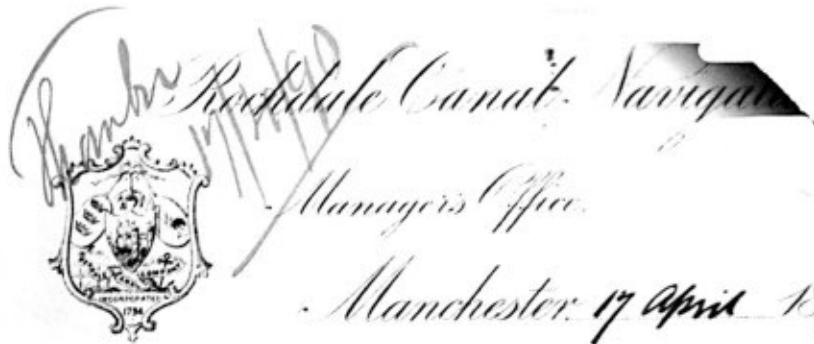 Rochdale Canal Navigati
Manager's Office
Manchester 17 April 18
INCORPORATED
1794